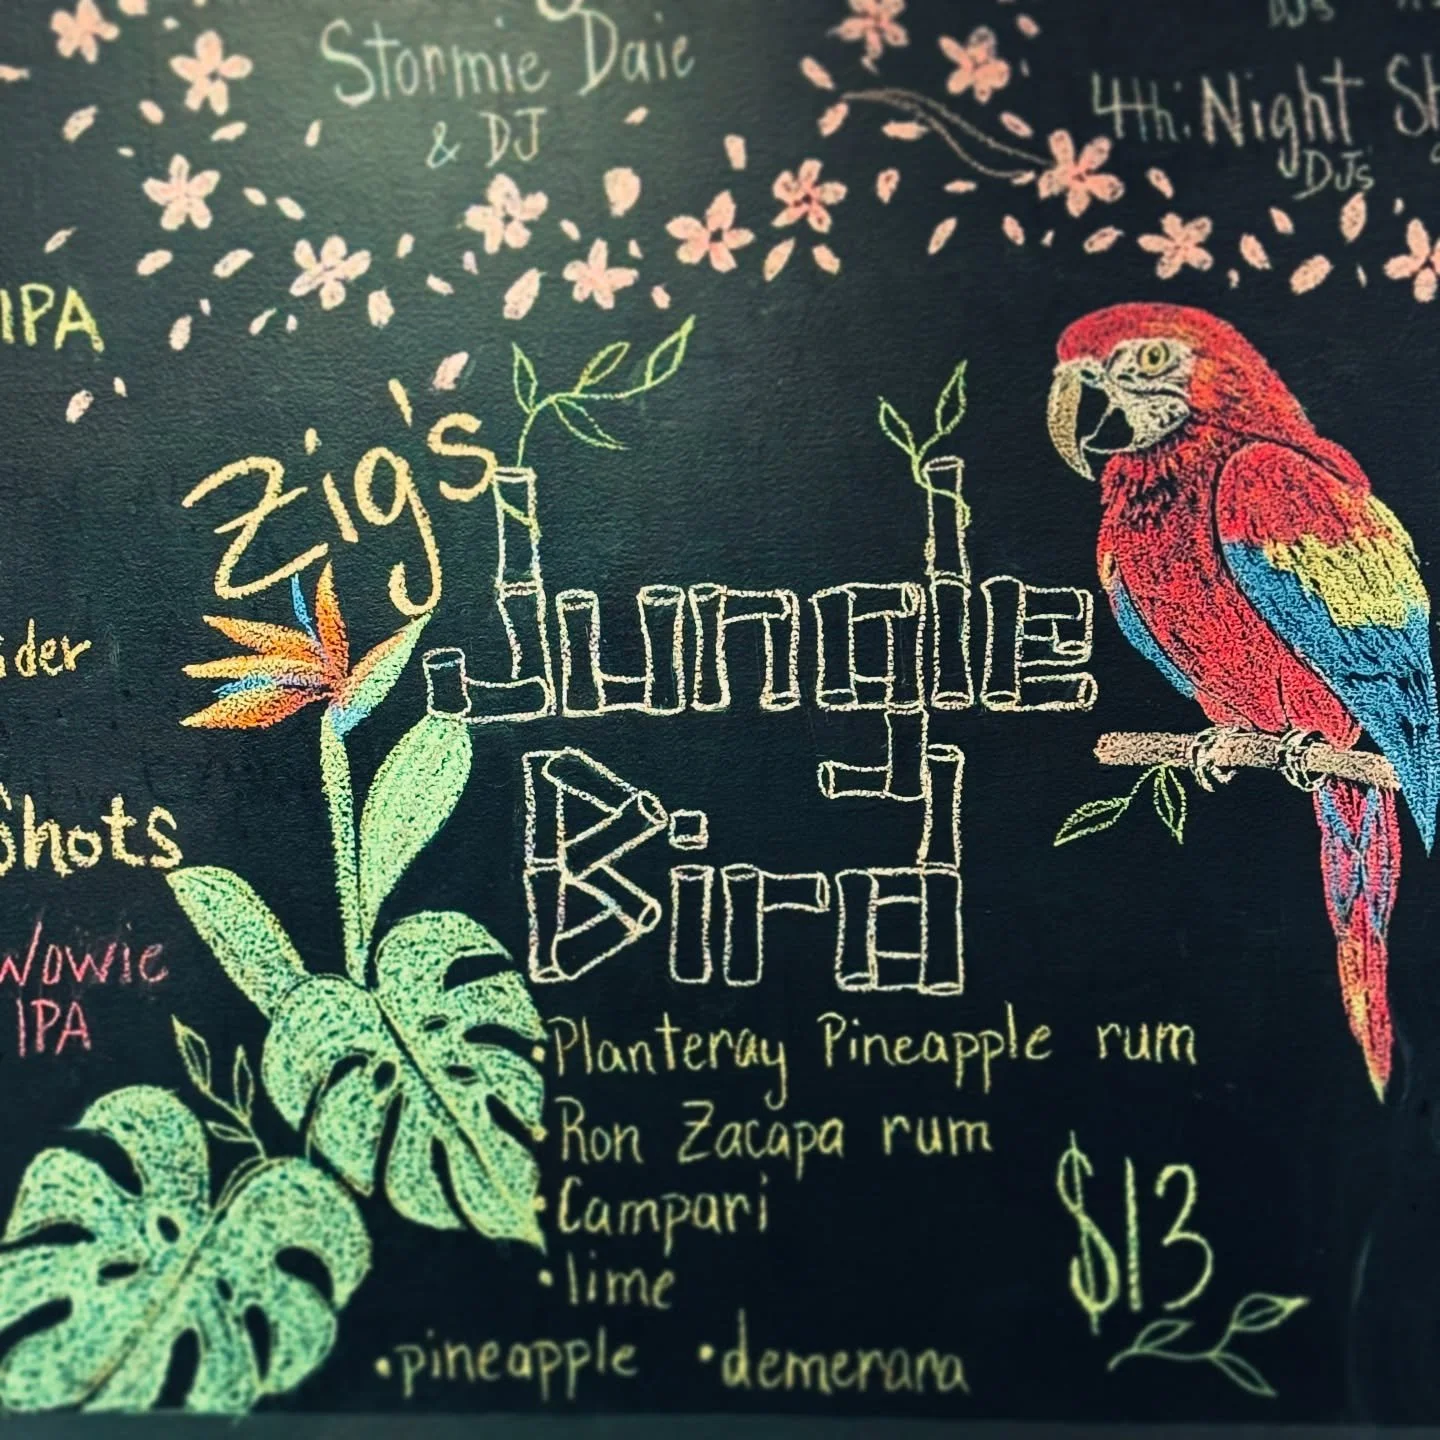 Stormie Daie
& DJ
DJs
4th: Night
DJs
IPA
Zig's
Jungle
Bird
Shots
Wowie
IPA
•Planteray Pineapple rum
•Ron Zacapa rum
•Campari
•lime
•pineapple •demerara
$13